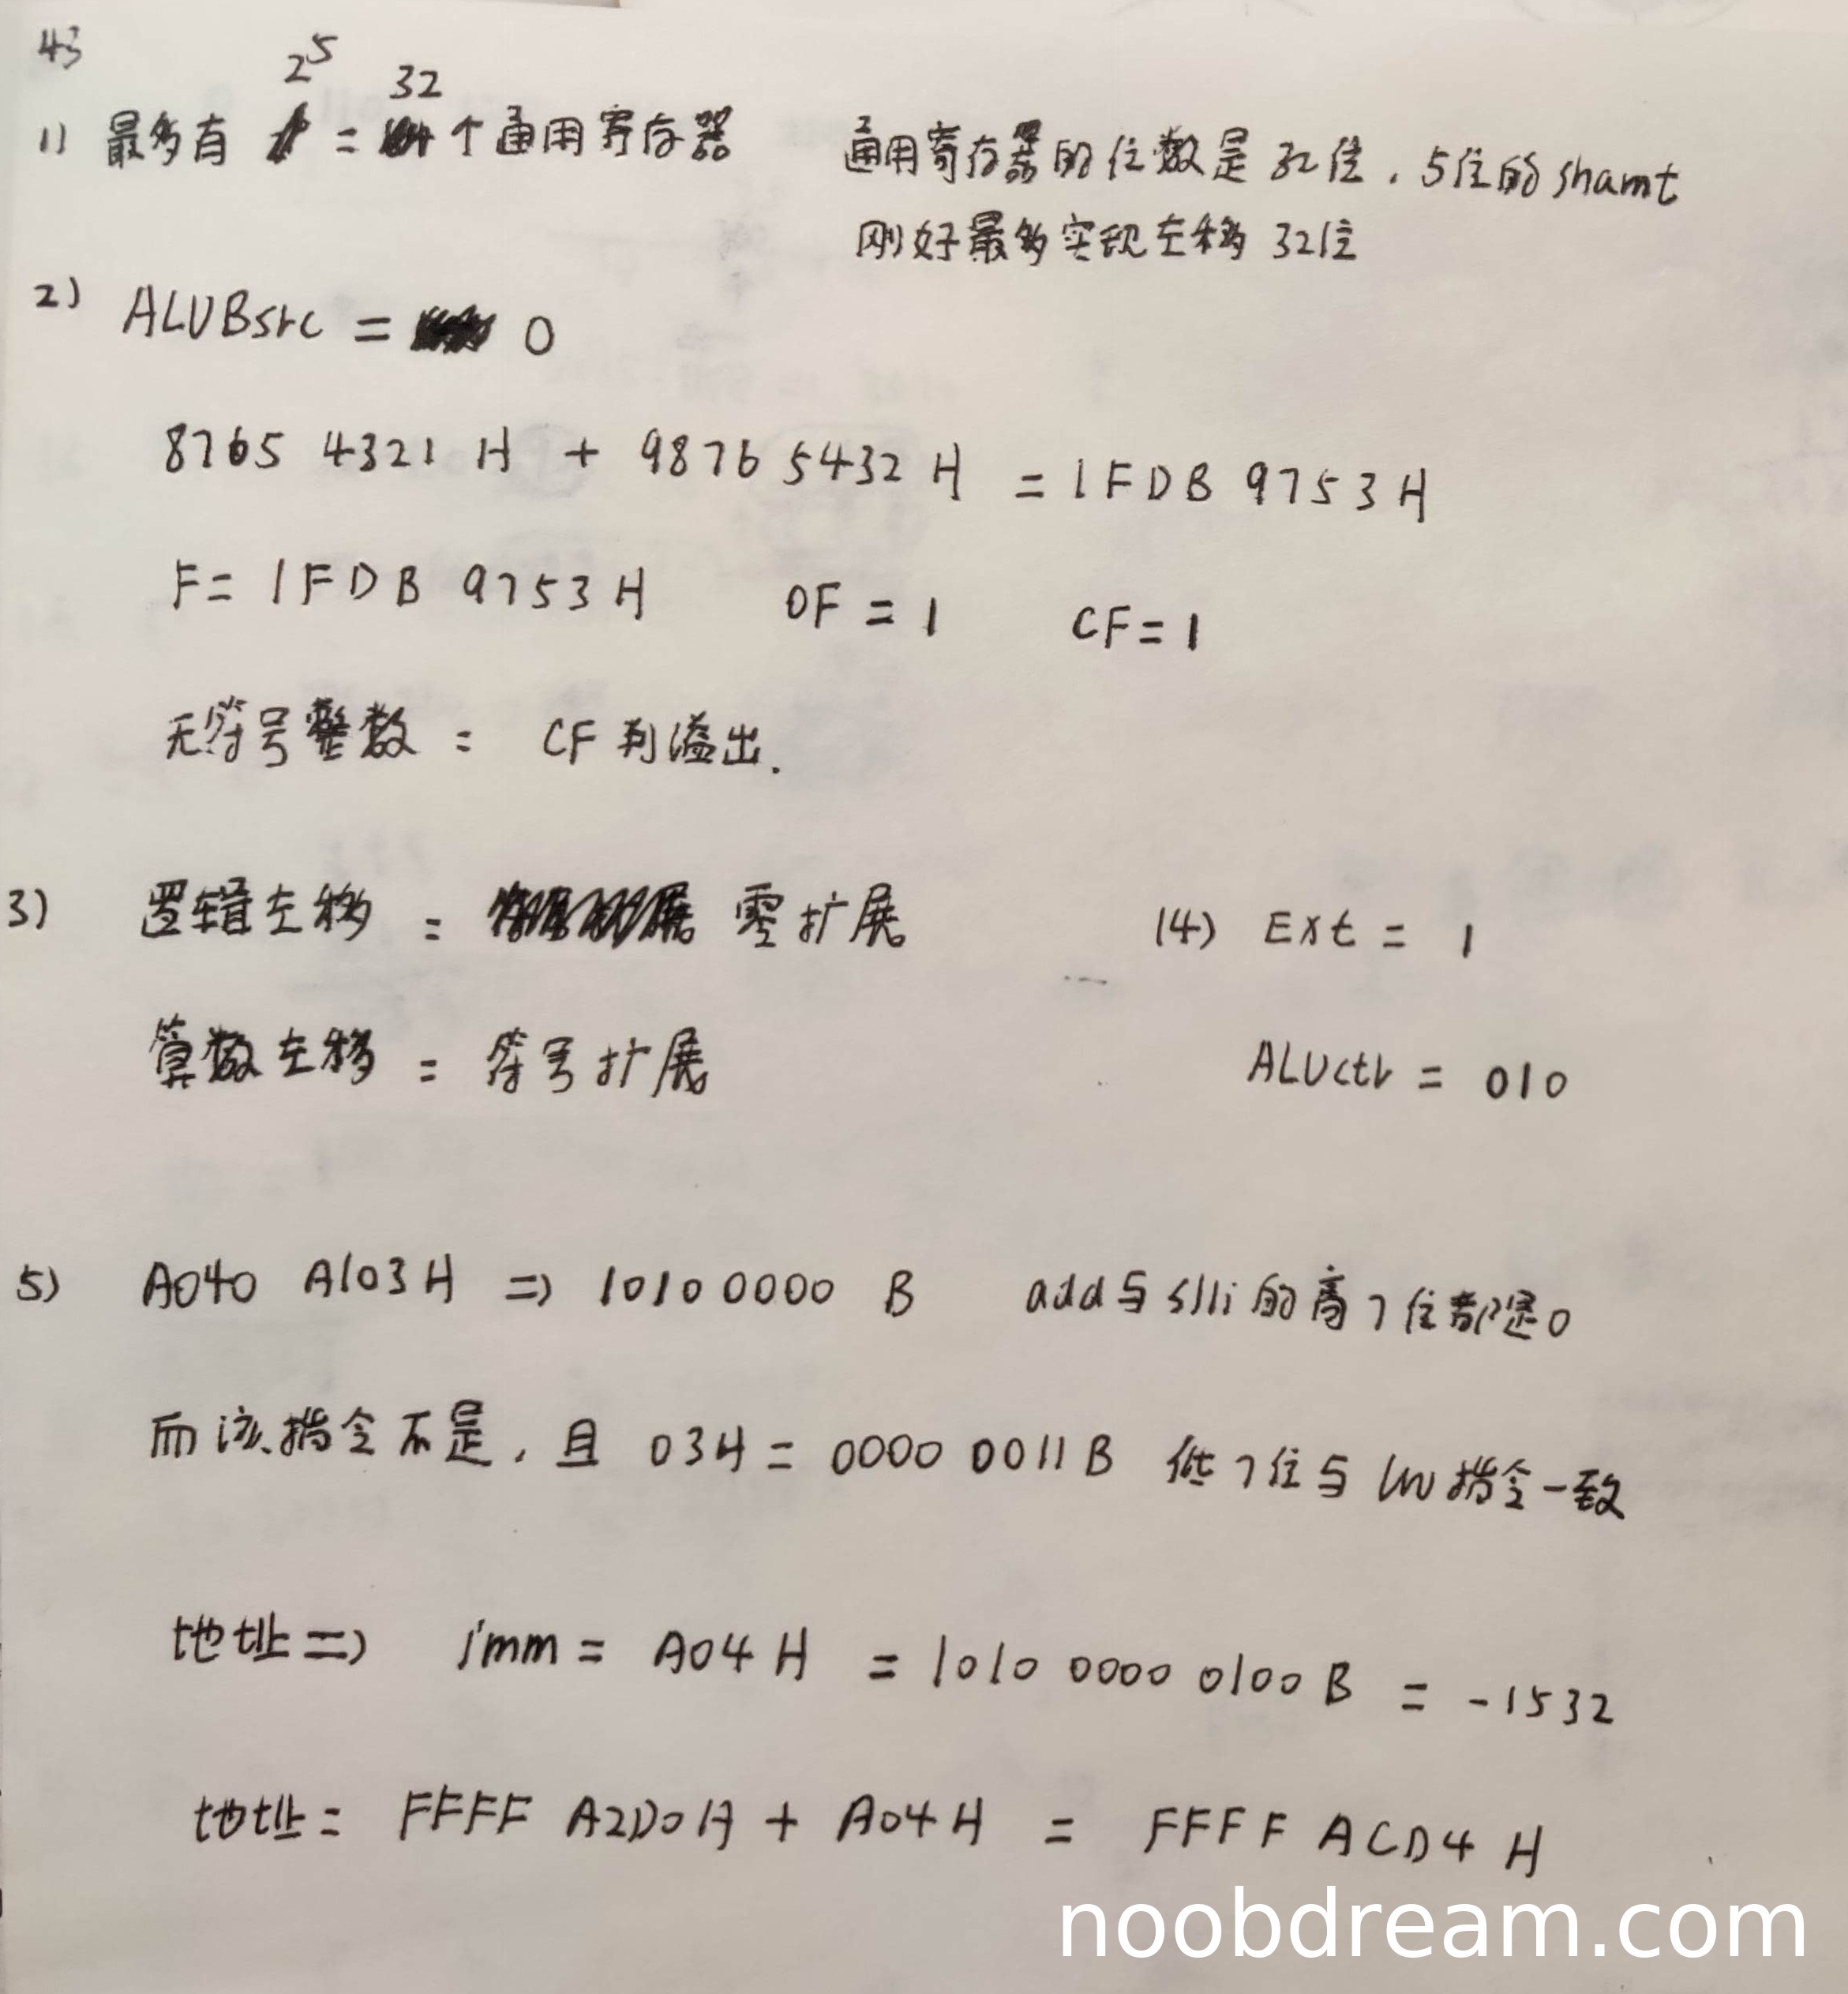 43
1) 最多有 2⁵ = 32 个通用寄存器 通用寄存器的位数是32位，5位的shamt
刚好最多实现左移 32位
2) ALUBsrc = 0
8765 4321 H + 9876 5432 H = 1FDB 9753H
F= 1FDB 9753H OF = 1 CF=1
无符号整数： CF判溢出.
3) 逻辑左移： 零扩展 (4) Ext = 1
算数左移： 符号扩展 ALUctr = 010
5) A040 A103H => 1010 0000 B add与slli的高7位都是0
而该指令不是，且 03H = 0000 0011B 低7位与lw指令一致
地址=> imm = A04H = 1010 0000 0100 B = -1532
地址= FFFF A2D0H + A04H = FFFF ACD4 H
noobdream.com